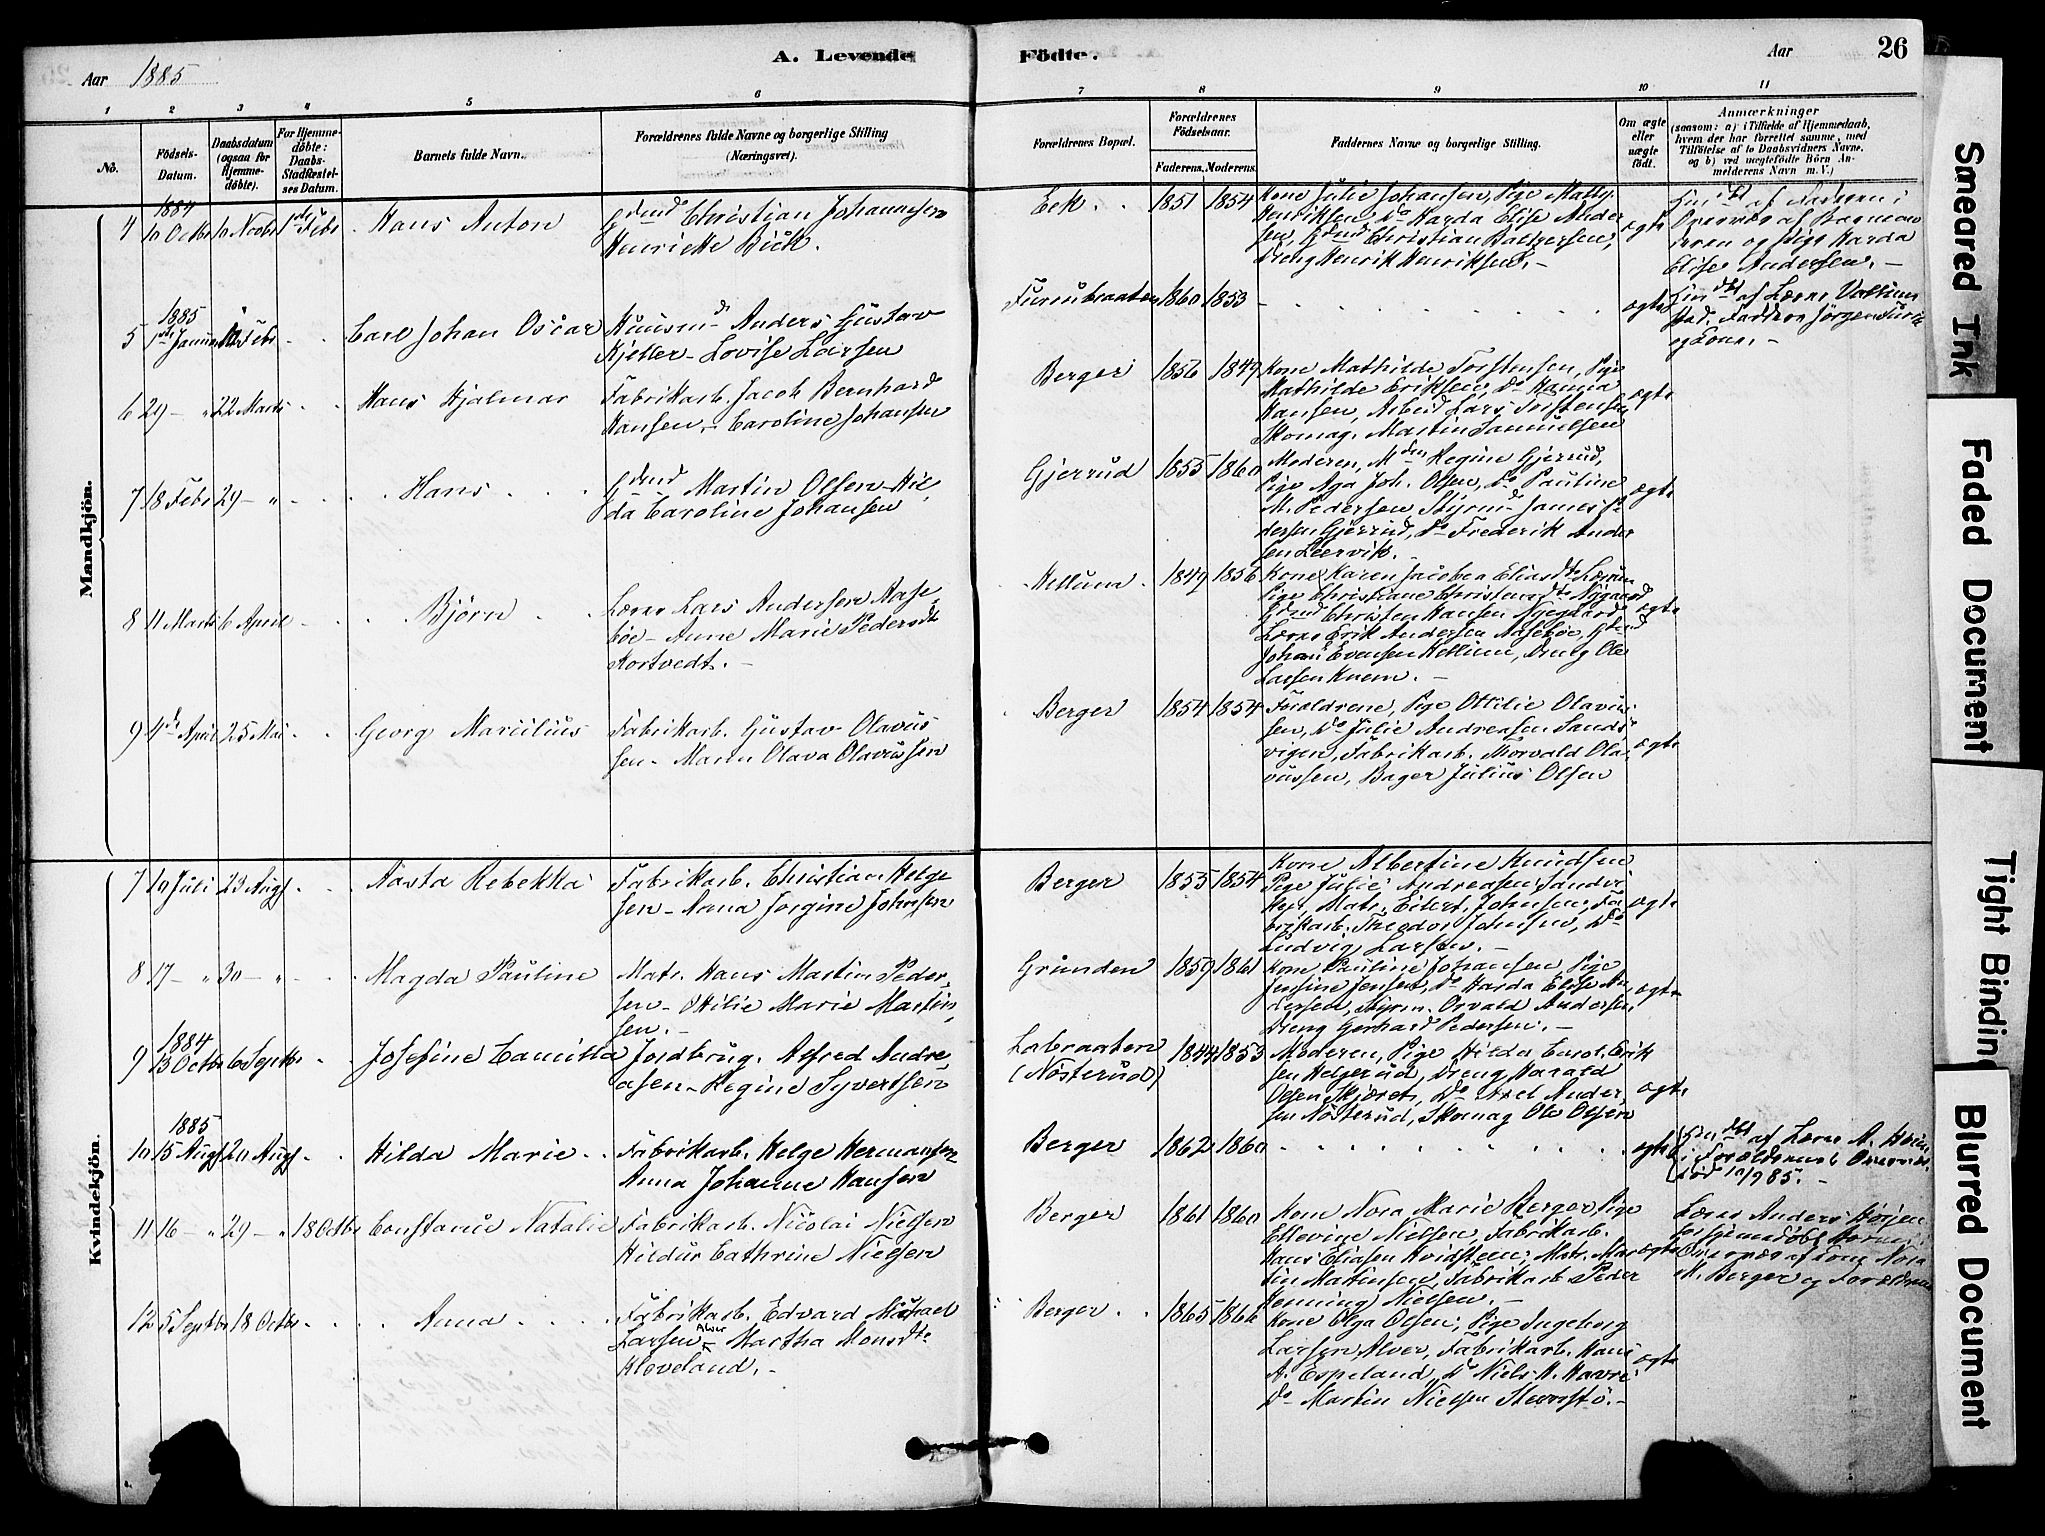 A. Levende
Födte.
Aar
26
Aar 1885
1 2 3 4 5 6 7 8 9 10 11
No.
Födsels-
Datum.
Daabsdatum
(ogsaa for
Hjemme-
döbte).
For Hjemme-
döbte:
Daabs-
Stadfæstel-
ses Datum.
Barnets fulde Navn.
Forældrenes fulde Navne og borgerlige Stilling
(Næringsvei).
Forældrenes Bopæl.
Forældrenes
Födselsaar.
Faderens.
Moderens.
Faddernes Navne og borgerlige Stilling.
Om ægte
eller
uægte
födt.
Anmærkninger
(saasom: a) i Tilfælde af Hjemmedaab,
hvem der har forrettet samme, med
Tilföielse af to Daabsvidners Navne,
og b) ved uægtefödte Börn An-
melderens Navn m. V.)
Mandkjön.
1884
4 10 Octbr 10 Novbr 1ste Febr Hans Anton
Gdmd Christian Johannesen
Henriette Bück.
Eek 1851 1854
Kone Julie Johansen, Pige Math.
Henriksen, Do Harda Elise Ander
sen, Gdmd Christian Baltzersen,
Dreng Henrik Henriksen.
ægte
Elise Andersen.
1885
5 1ste Januar Febr Carl Johan Oscar
Huusmd Anders Gustav
Kjeller - Lovise Larsen
Furuubraaten 1860 1853
ægte
6 29 - " 22 Marts Hans Hjalmar
Fabrikarb. Jacob Bernhard
Hansen - Caroline Johansen
Berger 1856 1849
Kone Mathilde Torstensen, Pige
Mathilde Eriksen, Do Hanna
Hansen, Arbeid Lars Torstensen
Skomag. Martin Samuelsen
ægte
7 18 Febr 29 - " Hans
Gdmd Martin Olsen - Hil
da Caroline Johansen
Gjerrud 1855 1860
Moderen, Mden Regine Gjerrud,
Pige Aga Joh. Olsen, Do Pauline
M. Pedersen Styrmd James Pe
dersen Gjerrud, Do Frederik Ander
sen Leervik.
ægte
8 11 Marts 6 April Björn
Lærer Lars Andersen Aase
böe - Anne Marie Pedersdt
Kortvedt.
Hellum 1849 1856
Kone Karen Jacobea Eliasdtr
Pige Christiane Christensdtr Nygaard
Gdmd Christen Hansen Nygaard
Lærer Erik Andersen Aaseböe, Gdmd
Johan Evensen Hellum, Dreng Ole
Larsen Knem.
ægte
9 4de April 25 Mai Georg Marcilius
Fabrikarb. Gustav Olavus
sen - Maren Olava Olavussen
Berger 1854 1854
Foreldrene, Pige Ottilie Olavus
sen, Do Julie Andreasen Sands
vigen, Fabrikarb. Thorvald Ola
vussen, Bager Julius Olsen
ægte
Kvindekjön.
7 19 Juli 23 Augs Aasta Rebekka
Fabrikarb. Christian Helge
sen - Anna Jorgine Johnsen
Berger 1855 1854
Kone Albertine Knudsen
Pige Julie Andreasen Sandvi
Matr. Eilert Johnsen, Fa
brikarb. Theodor Johnsen, Do
Ludvig Larsen.
ægte
8 17 - " 30 - " Magda Pauline
Matr. Hans Martin Peder
sen - Ottilie Marie Martin
sen.
Grunden 1859 1861
Kone Pauline Johansen, Pige
Jensine Jensen, Do Harda Elise An
dersen, Styrm. Osvald Andersen
Dreng Gerhard Pedersen.
ægte
1884
9 13 Octbr 6 Septbr Josefine Camilla
Jordbrug. Alfred Andre
asen - Regine Syvertsen
Labraaten
(Nösterud)
1844 1853
Moderen, Pige Hilda Carol. Erik
sen Helgerud, Dreng Harald
Olsen Skjæret, Do Axel Ander
sen Nösterud, Skomag Ole Olsen
ægte
1885
10 15 Augs 20 Augs Hilda Marie
Fabrikarb. Helge Hermansen
Anna Johanne Hansen
Berger 1862 1860
ægte
Hjmdbt af Lærer A. Höien
i Forældrenes Overvær.
11 16 - " 29 - " 18 Octbr Constance Natalie
Fabrikarb. Nicolai Nielsen
Hildur Cathrine Nielsen
Berger 1861 1860
Kone Nora Marie Berger, Pige
Ellevine Nielsen, Fabrikarb.
Hans Eliasen Hvidsteen, Matr. Mar
tin Martinsen, Fabrikarb Peder
Henning Nielsen.
ægte
Lærer Anders Höijen
Overvær af Kone Nora
M. Berger og Forældrene
12 5 Septbr 18 Octbr Anna
Fabrikarb. Edvard Michael
Larsen Alver - Martha Monsdtr
Kleveland.
Berger 1865 1862
Kone Olga Olsen, Pige Ingeborg
Larsen Alver, Fabrikarb. Hans
A. Espeland, Do Niels H. Havre
Do Martin Nielsen Steensö.
ægte
Smeared Ink
Faded Document
Tight Bindin
Blurred Document